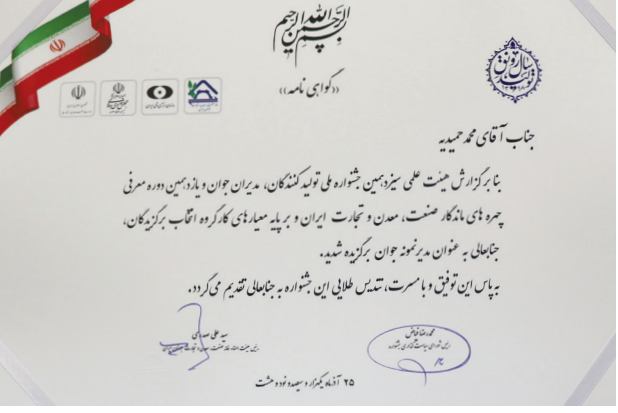 بسم الله الرحمن الرحیم
سال رونق تولید
۱۳۹۸
((گواهی نامه))
جناب آقای محمد حمیدیه
بنا بر گزارش هیئت علمی سیزدهمین جشنواره ملی تولیدکنندگان، مدیران جوان و یازدهمین دوره معرفی
چهره های ماندگار صنعت، معدن و تجارت ایران و بر پایه معیارهای کارگروه انتخاب برگزیدگان،
جنابعالی به عنوان مدیر نمونه جوان برگزیده شدید.
به پاس این توفیق و با مسرت، تندیس طلایی این جشنواره به جنابعالی تقدیم می گردد.
محمدرضا فیاض
رئیس شورای سیاست گذاری جشنواره
سید علی
۲۵ آذرماه یکهزار و سیصد و نود و هشت